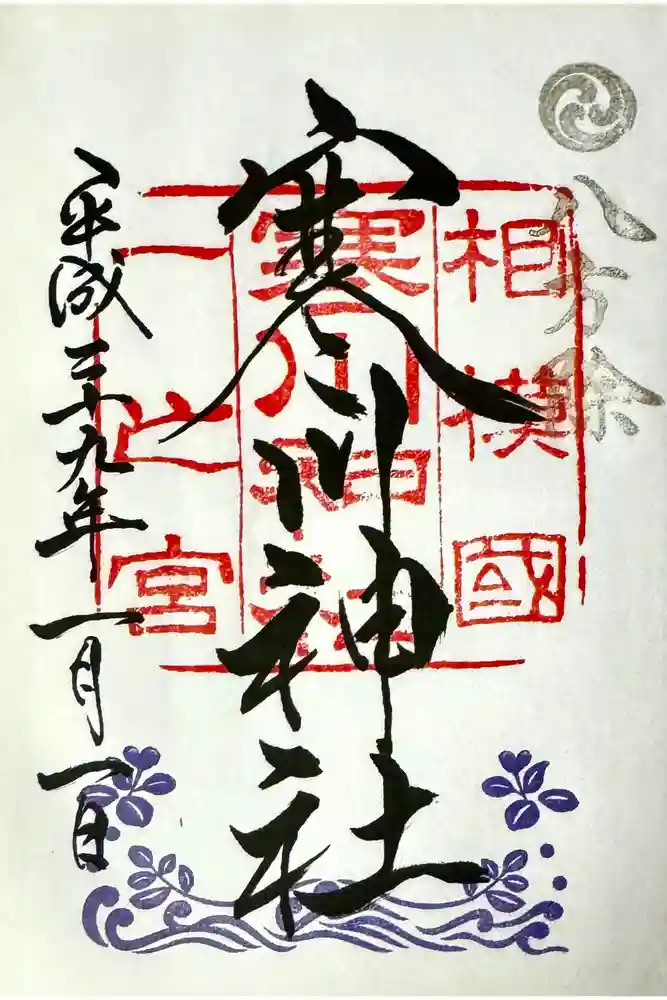 八方除
寒川神社
相模國
寒川神社
一之宮
平成二十九年一月一日